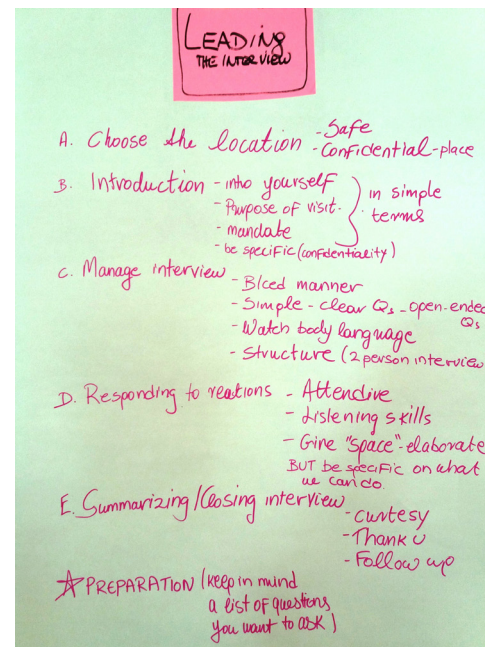 LEADING
THE INTERVIEW
A. Choose the location - Safe
- Confidential - place
B. Introduction - intro yourself
- Purpose of visit.
- mandate
- be specific (confidentiality)
in simple
terms
C. Manage interview
- Blced manner
- Simple - clear Qs - open-ended
Qs
- Watch body language
- Structure (2 person interview
D. Responding to reactions - Attendive
- Listening skills
- Give "space" - elaborate
BUT be specific on what
we can do.
E. Summarizing/Closing interview
- Curtesy
- Thank u
- Follow up
☆ PREPARATION (keep in mind
a list of questions
you want to ask)